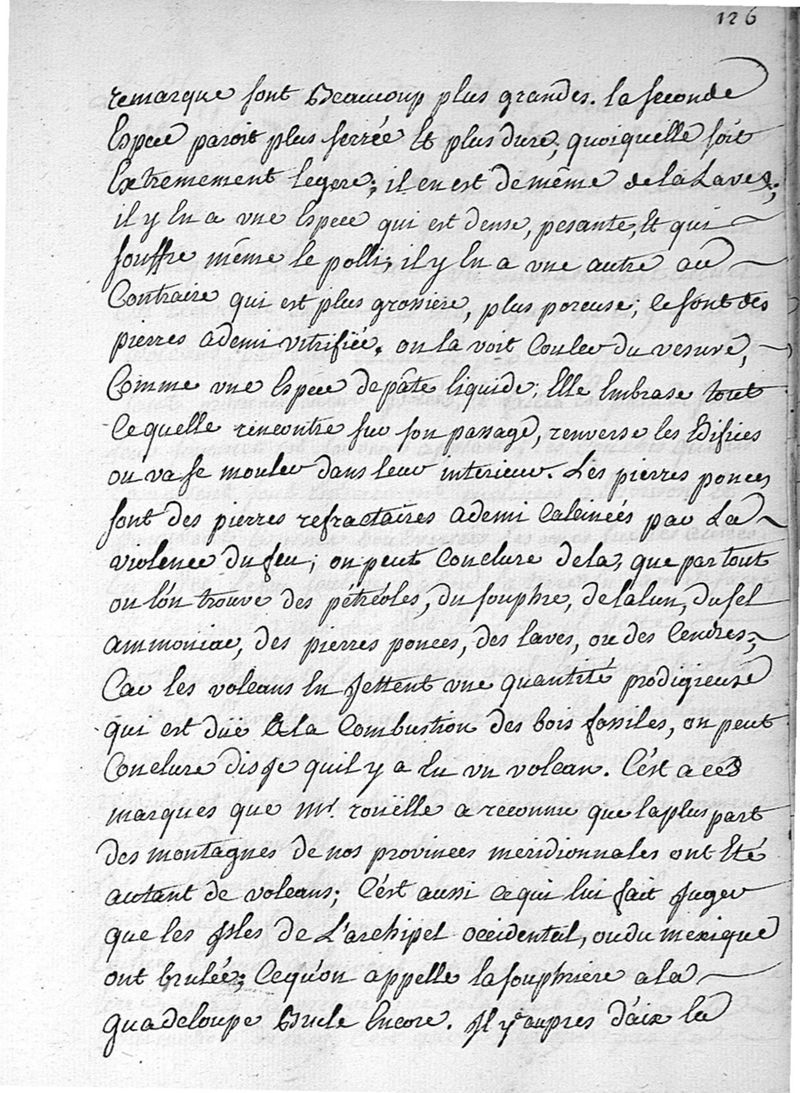 126
remarque sont Beaucoup plus grandes. la seconde
Espece paroit plus serrée Et plus dure, quoiquelle soit
Extremement legere; il en est de même de la Lave;
il y En a vne Espece qui est dense, pesante, Et qui
souffre même le polli; il y En a vne autre au
Contraire qui est plus grossiere, plus poreuse; ce sont des
pierres ademi vitrifiée. on la voit Couler du vesuve,
Comme vne Espéce de pâte liquide; Elle Embrase tout
Ce quelle rencontre sur son passage, renverse les Edifices
ou va se mouler dans leur interieur. Les pierres ponces
sont des pierres refractaires ademi Calcinées par La
violence du feu; on peut Conclure dela, que par tout
ou lón trouve des pétréoles, du souphre, de lalun, du sel
ammoniac, des pierres ponces, des laves, ou des Cendres;
Car les volcans En jettent vne quantité prodigieuse
qui est düe à la Combustion des bois fossiles, on peut
Conclure disje quil y a Eu vn volcan. C'est a ces
marques que Mr. rouëlle a reconnu que la plus part
des montagnes de nos provinces meridionnales ont Eté
autant de volcans; C'est aussi ce qui lui fait juger
que les jsles de L'archipel occidental, ou du mexique
ont brulée; Ce qu'on appelle la souphriere a la
guadeloupe Brule Encore. Il y a aupres d'aix la